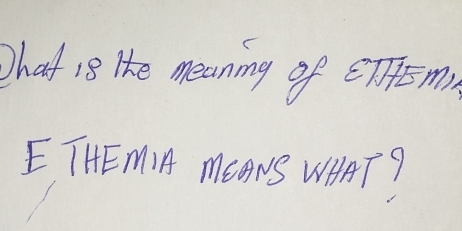 What is the meaning of ETHEMIA
E, THEMIA MEANS WHAT?